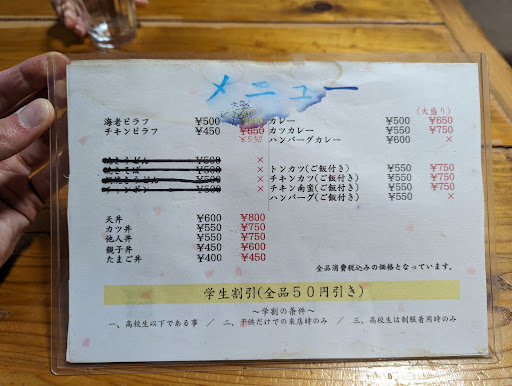 メニュー
(大盛り)
海老ピラフ ¥500 ¥650
チキンピラフ ¥450 ¥550
カレー ¥500 ¥650
カツカレー ¥550 ¥750
ハンバーグカレー ¥600 ×
¥500 ×
×
×
¥500 ×
トンカツ(ご飯付き) ¥550 ¥750
チキンカツ(ご飯付き) ¥550 ¥750
チキン南蛮(ご飯付き) ¥550 ¥750
ハンバーグ(ご飯付き) ¥550 ×
天丼 ¥600 ¥800
カツ丼 ¥550 ¥750
他人丼 ¥550 ¥750
親子丼 ¥450 ¥600
たまご丼 ¥400 ¥450
全品消費税込みの価格となっています。
学生割引(全品50円引き)
～学割の条件～
一、高校生以下である事 / 二、子供だけでの来店時のみ / 三、高校生は制服着用時のみ